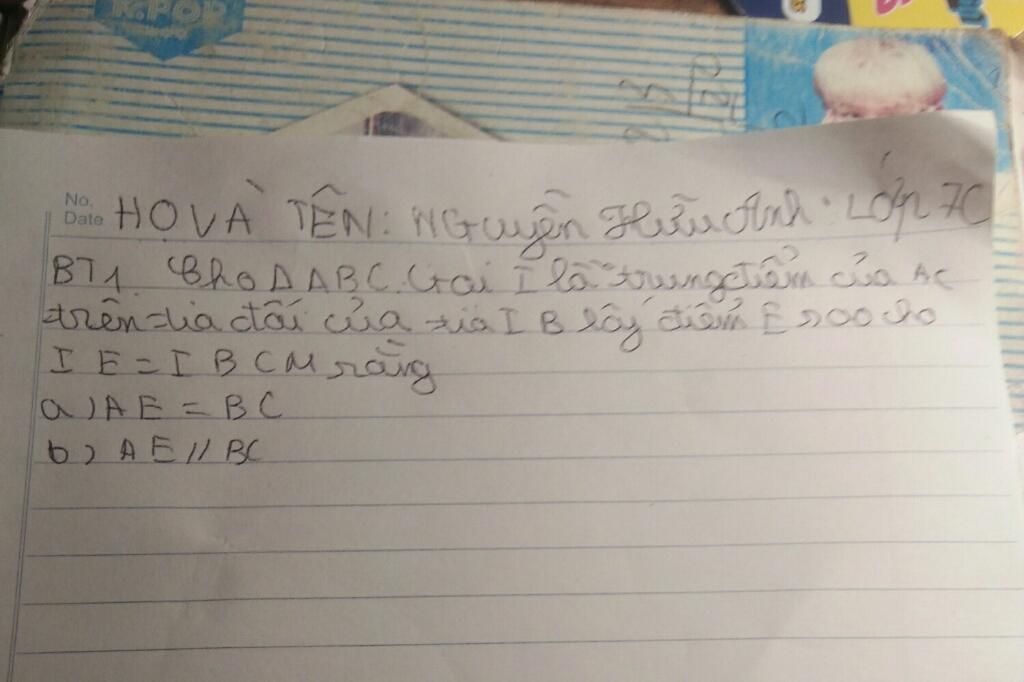 K.POP
No.
Date
HỌ VÀ TÊN: NGuyễn Hữu Anh. LỚP 7C
BT1 Cho Δ ABC. Gọi I là trung điểm của AC
trên tia đối của tia I B lấy điểm E sao cho
I E = I B CM rằng
a) AE = BC
b) AE // BC